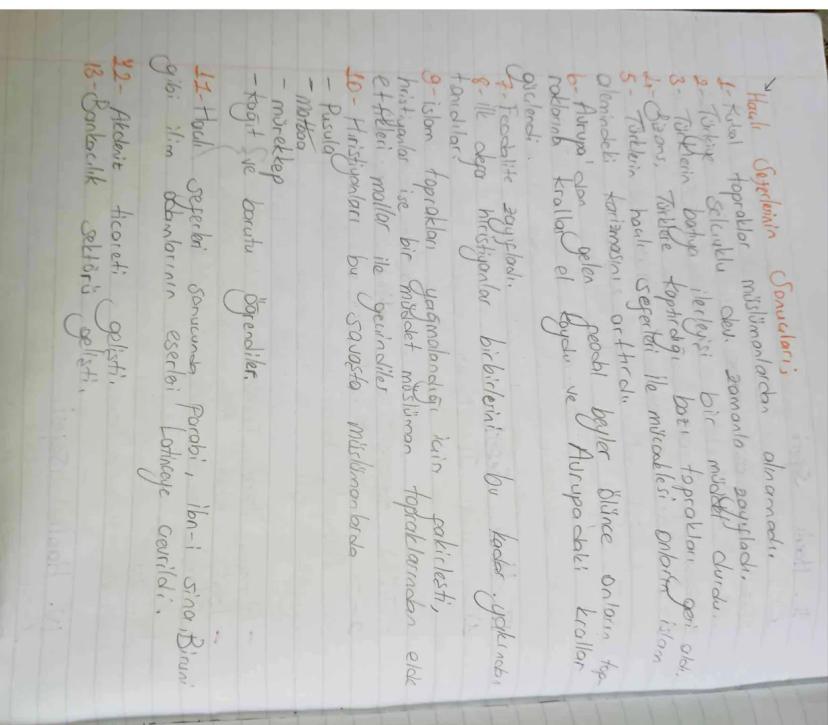 Haçlı Seferlerinin Sonuçları;
1- Kutsal topraklar müslümanlardan alınamadı.
2- Türkiye selçuklu dev. zamanla zayıfladı.
3- Türklerin batıya ilerleyişi bir müddet durdu.
4- Bizans, Türklere kaptırdığı bazı toprakları geri aldı.
5- Türklerin haçlı seferleri ile mücadelesi onların islam
alemindeki karizmasını arttırdı.
6- Avrupa'dan gelen feodal beyler ölünce onların top
raklarına krallar el koydu ve Avrupadaki krallar
güçlendi.
7- Feodalite zayıfladı.
8- İlk defa hiristiyanlar birbirlerini bu kadar yakından
tanıdılar.
9- islam toprakları yağmalandığı için fakirleşti,
hristiyanlar ise bir müddet müslüman topraklarından elde
ettikleri mallar ile geçindiler
10- Hiristiyanları bu savaşta müslümanlarda
- Pusula
- matbaa
- mürekkep
- kağıt ve barutu öğendiler.
11- Haçlı seferleri sonucunda Farabi, ibn-i Sina, Biruni
gibi ilim adamlarının eserleri Latinceye çevrildi.
12- Akdeniz ticareti gelişti.
13- Bankacılık sektörü gelişti.